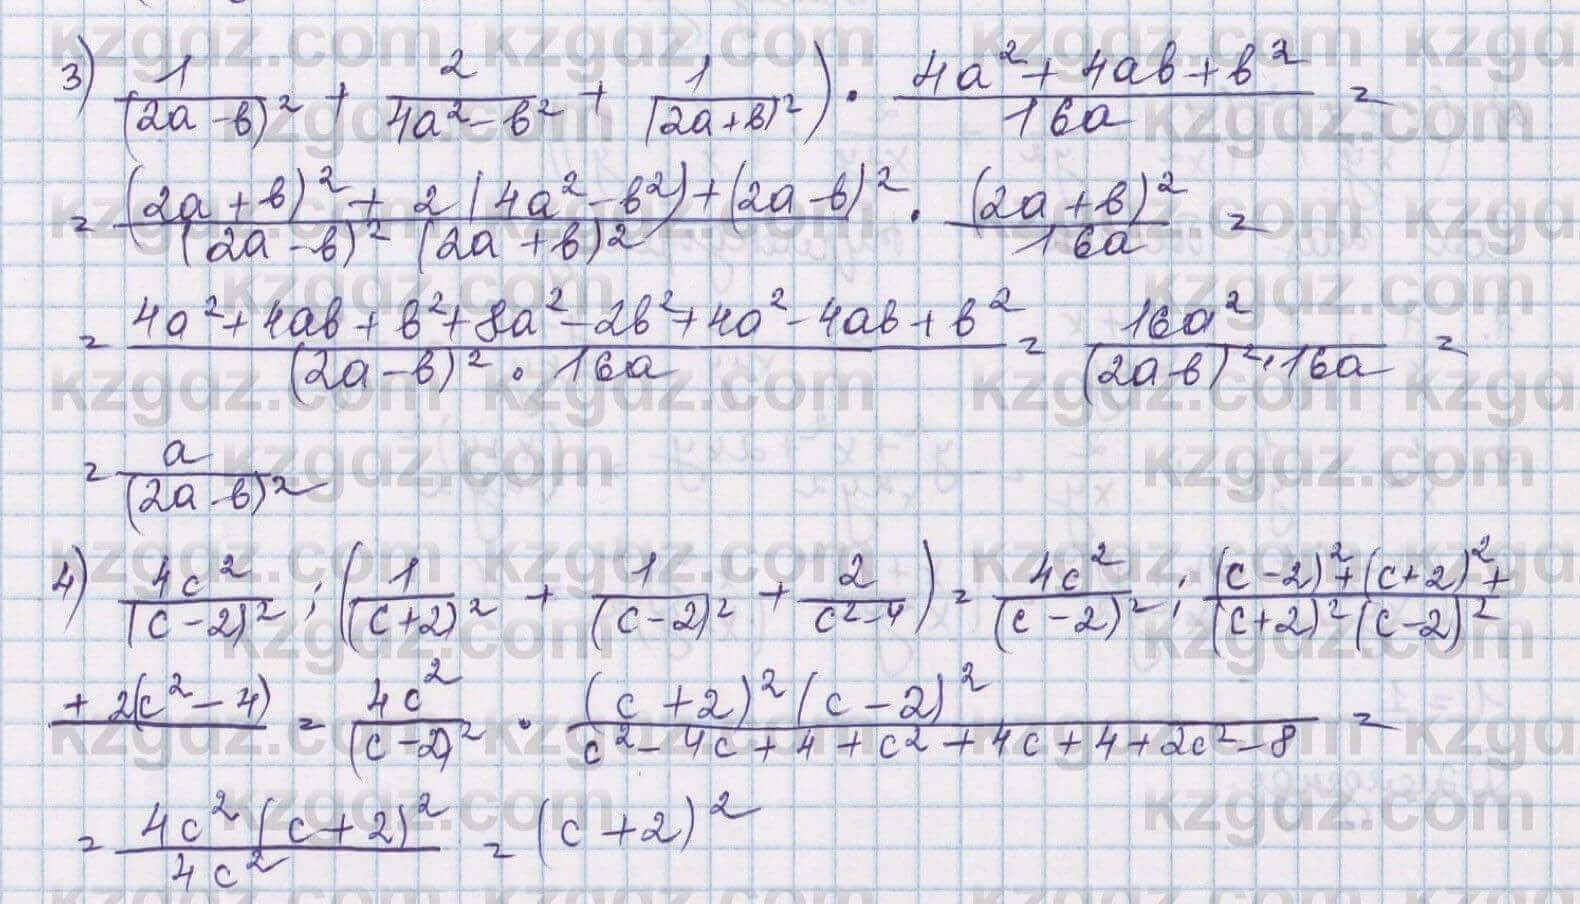 3) 1/(2a-b)² + 2/(4a²-b²) + 1/(2a+b)²) · (4a²+4ab+b²)/16a =
= ((2a+b)² + 2(4a²-b²)+(2a-b)²)/((2a-b)² (2a+b)²) · (2a+b)²/16a =
= (4a²+4ab+b²+8a²-2b²+4a²-4ab+b²)/((2a-b)² · 16a) = 16a²/((2a-b)²·16a) =
= a/(2a-b)²
4) 4c²/(c-2)² : (1/(c+2)² + 1/(c-2)² + 2/(c²-4)) = 4c²/(c-2)² : ((c-2)²+(c+2)²+)/((c+2)²(c-2)²)
+2(c²-4) = 4c²/(c-2)² · ((c+2)²(c-2)²)/(c²-4c+4+c²+4c+4+2c²-8) =
= 4c²(c+2)²/4c² = (c+2)²
kzgdz.com